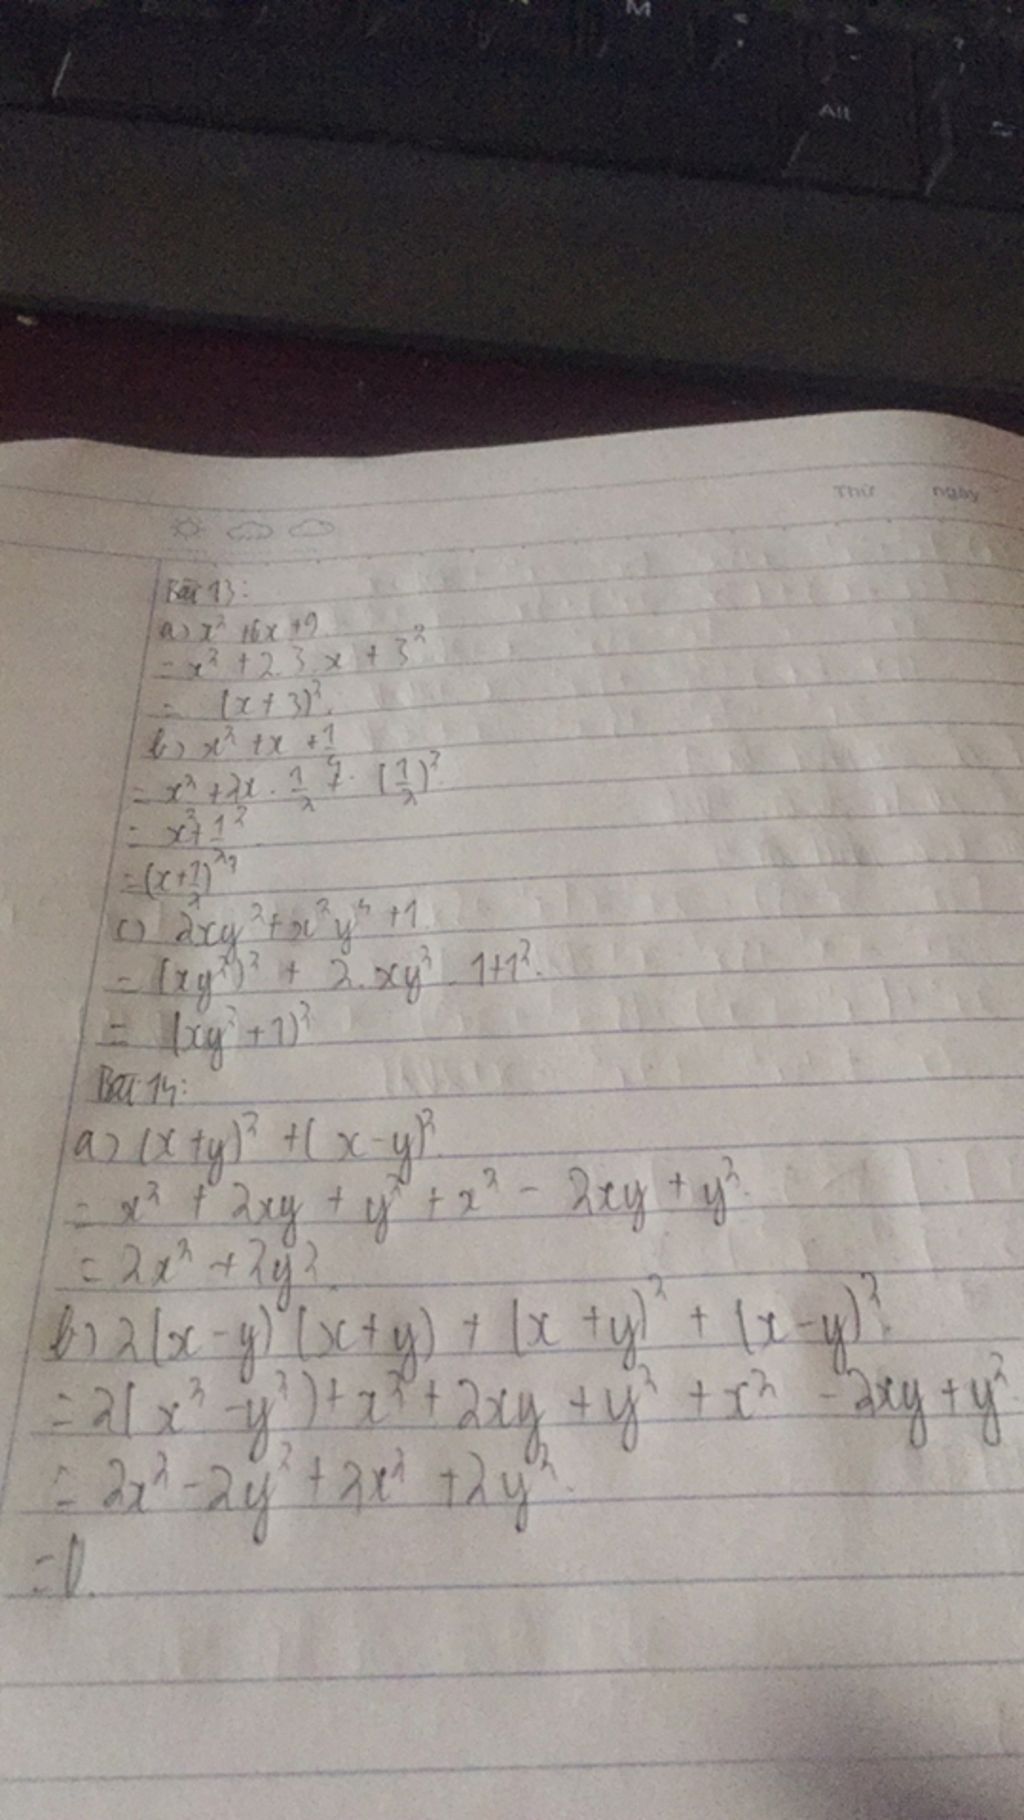 M
Alt
Thứ ngày
Bài 13:
a) x² + 6x + 9
= x² + 2.3.x + 3²
= (x + 3)².
b) x² + x + 1/4
= x² + 2x . 1/2 + (1/2)²
= x² + 1²
= (x + 1/2)²
c) 2xy² + x²y⁴ + 1
= (xy²)² + 2.xy².1 + 1².
= (xy² + 1)²
Bài 14:
a) (x + y)² + (x - y)²
= x² + 2xy + y² + x² - 2xy + y².
= 2x² + 2y².
b) 2(x - y)(x + y) + (x + y)² + (x - y)².
= 2(x² - y²) + x² + 2xy + y² + x² - 2xy + y²
= 2x² - 2y² + 2x² + 2y².
= 0.